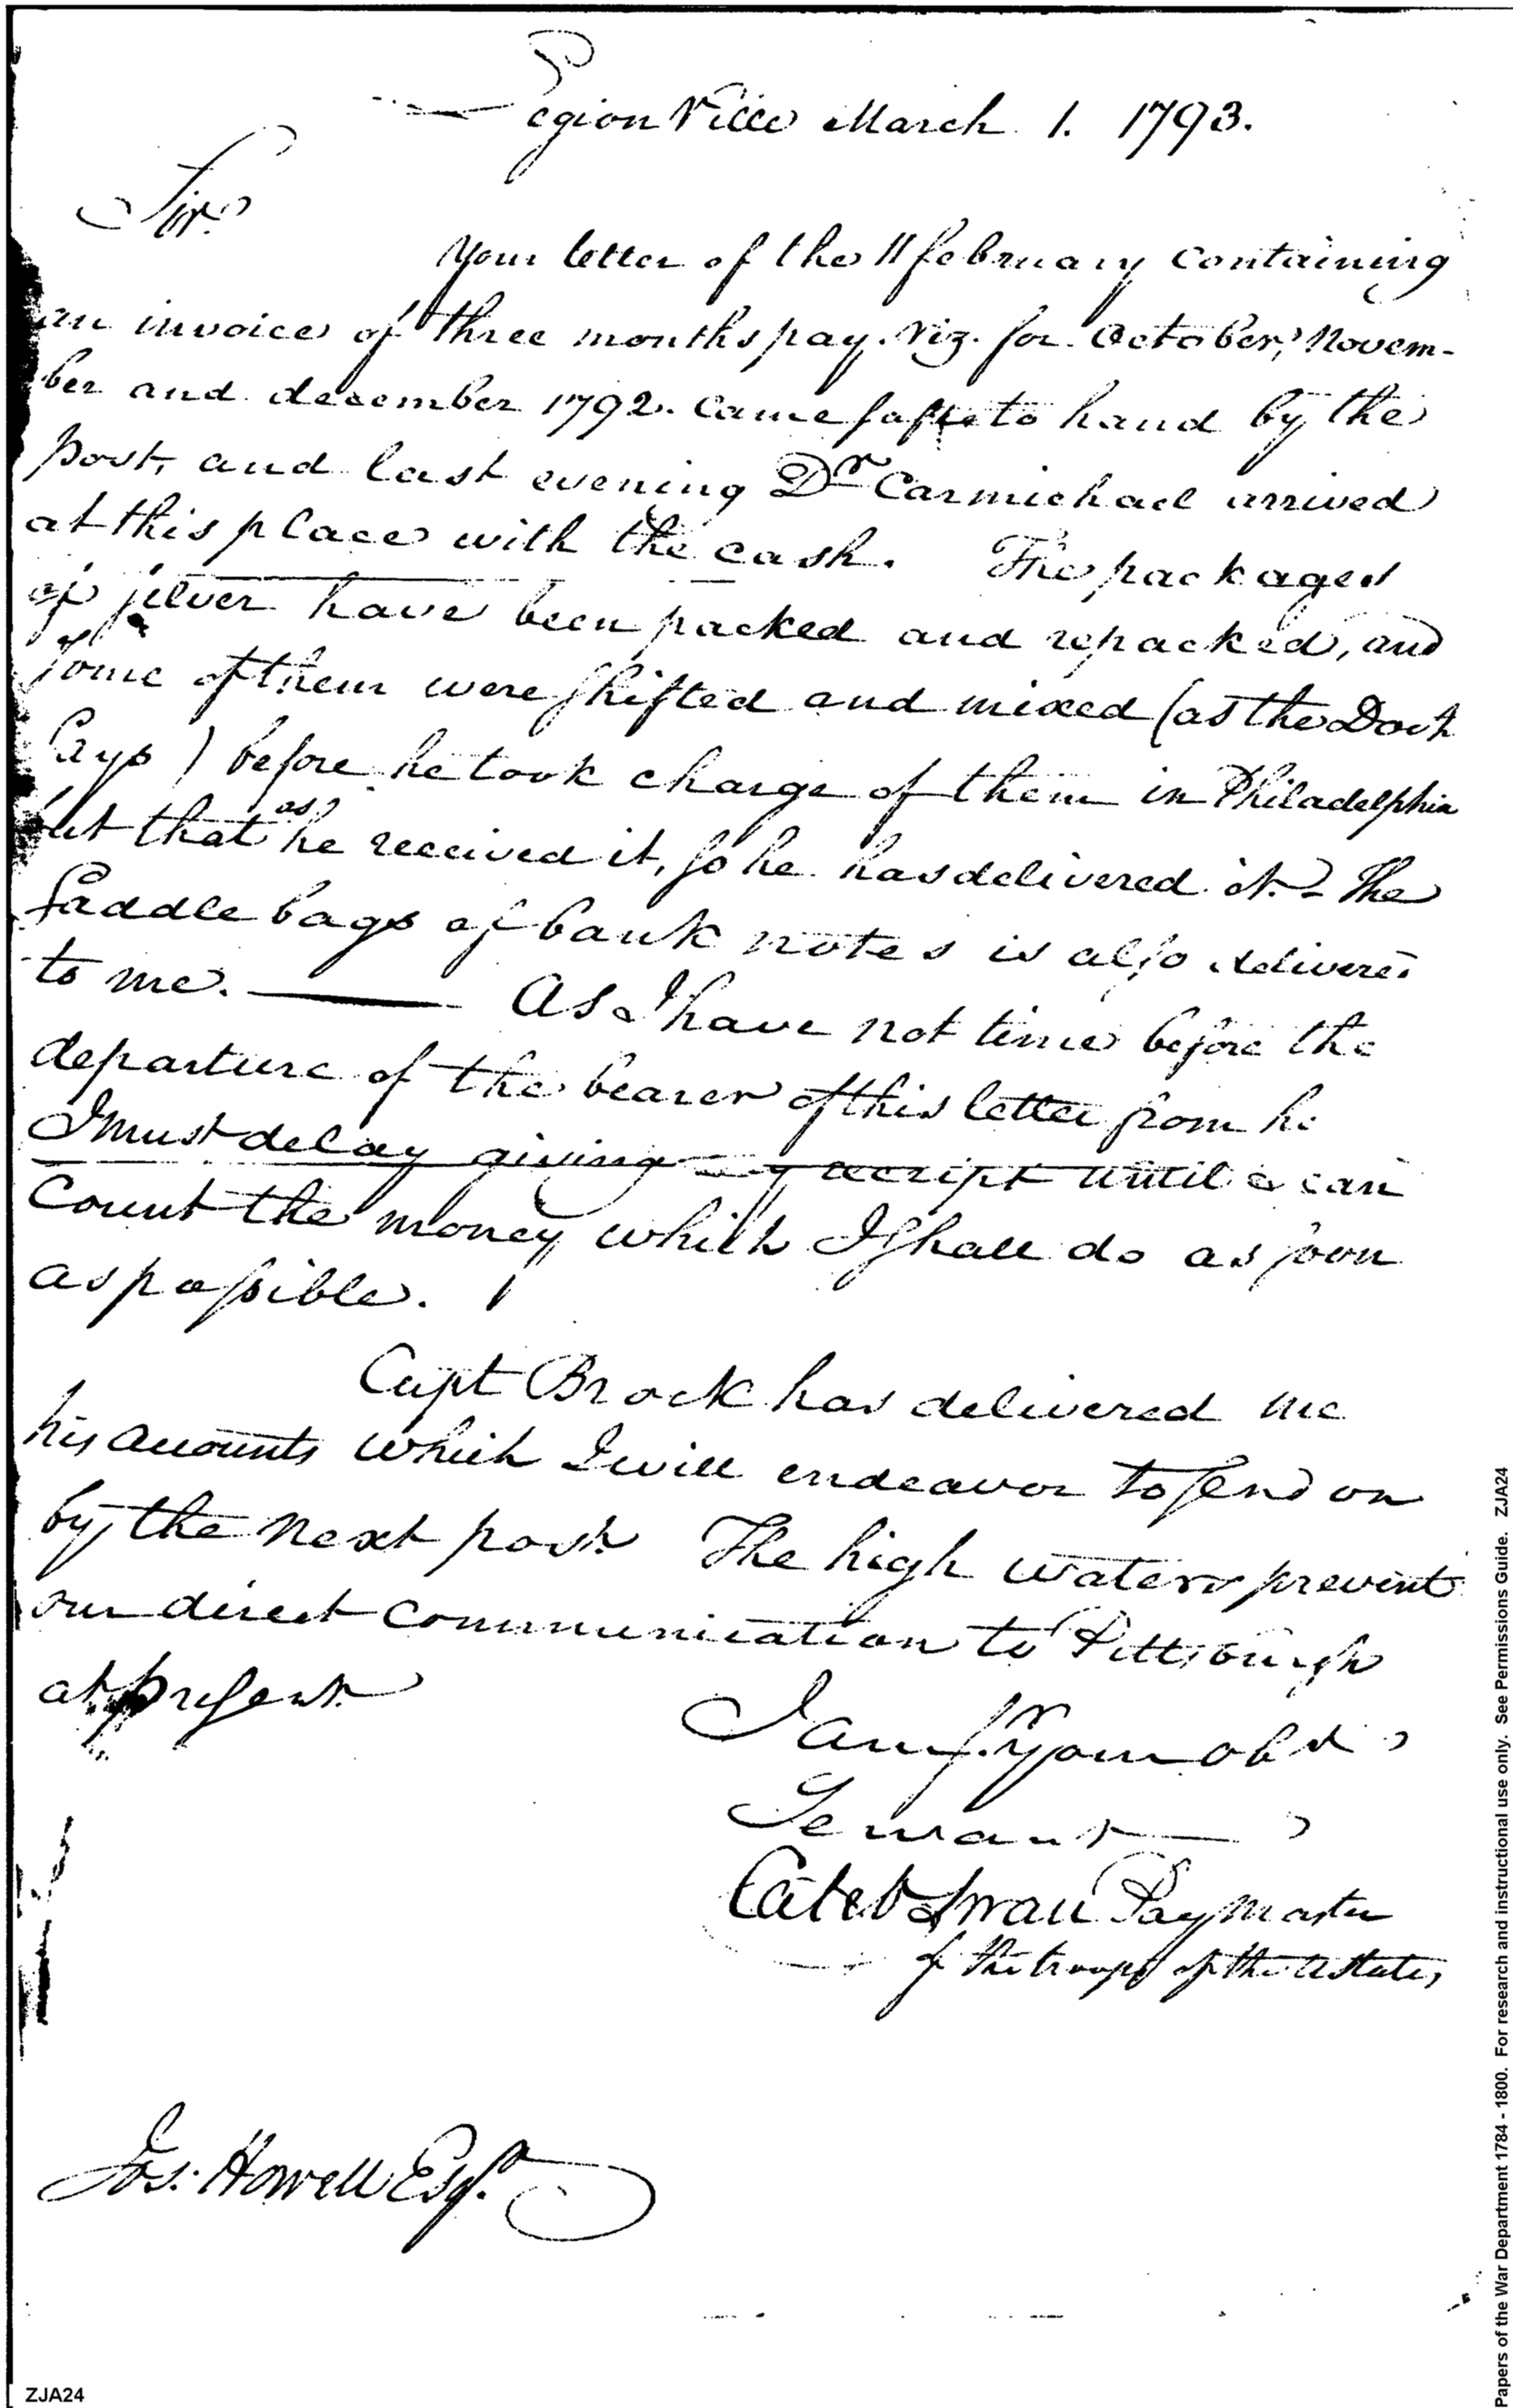 Legion Ville March 1. 1793.
Sir
Your letter of the 11 february containing
an invoice of three months pay. viz. for October, Novem-
ber and december 1792. came safe to hand by the
post, and last evening Dr Carmichael arrived
at this place with the cash. The packages
of silver have been packed and repacked, and
some of them were shifted and mixed (as the Doct
Says) before he took charge of them in Philadelphia
but that as he received it, so he has delivered it. - The
Saddle bags of bank notes is also delivered
to me. — As I have not time before the
departure of the bearer of this letter from he
I must delay giving my receipt until I can
Count the money which I shall do as soon
as possible.
Capt Brock has delivered me
his accounts which I will endeavor to send on
by the next post. The high waters prevent
our direct communication to Pittsburgh
at present
I am Sr. Your obd
Servant
Caleb Swan Paymaster
of the troops of the U States,
Jos. Howell Esqr.
ZJA24
Papers of the War Department 1784 - 1800. For research and instructional use only. See Permissions Guide. ZJA24